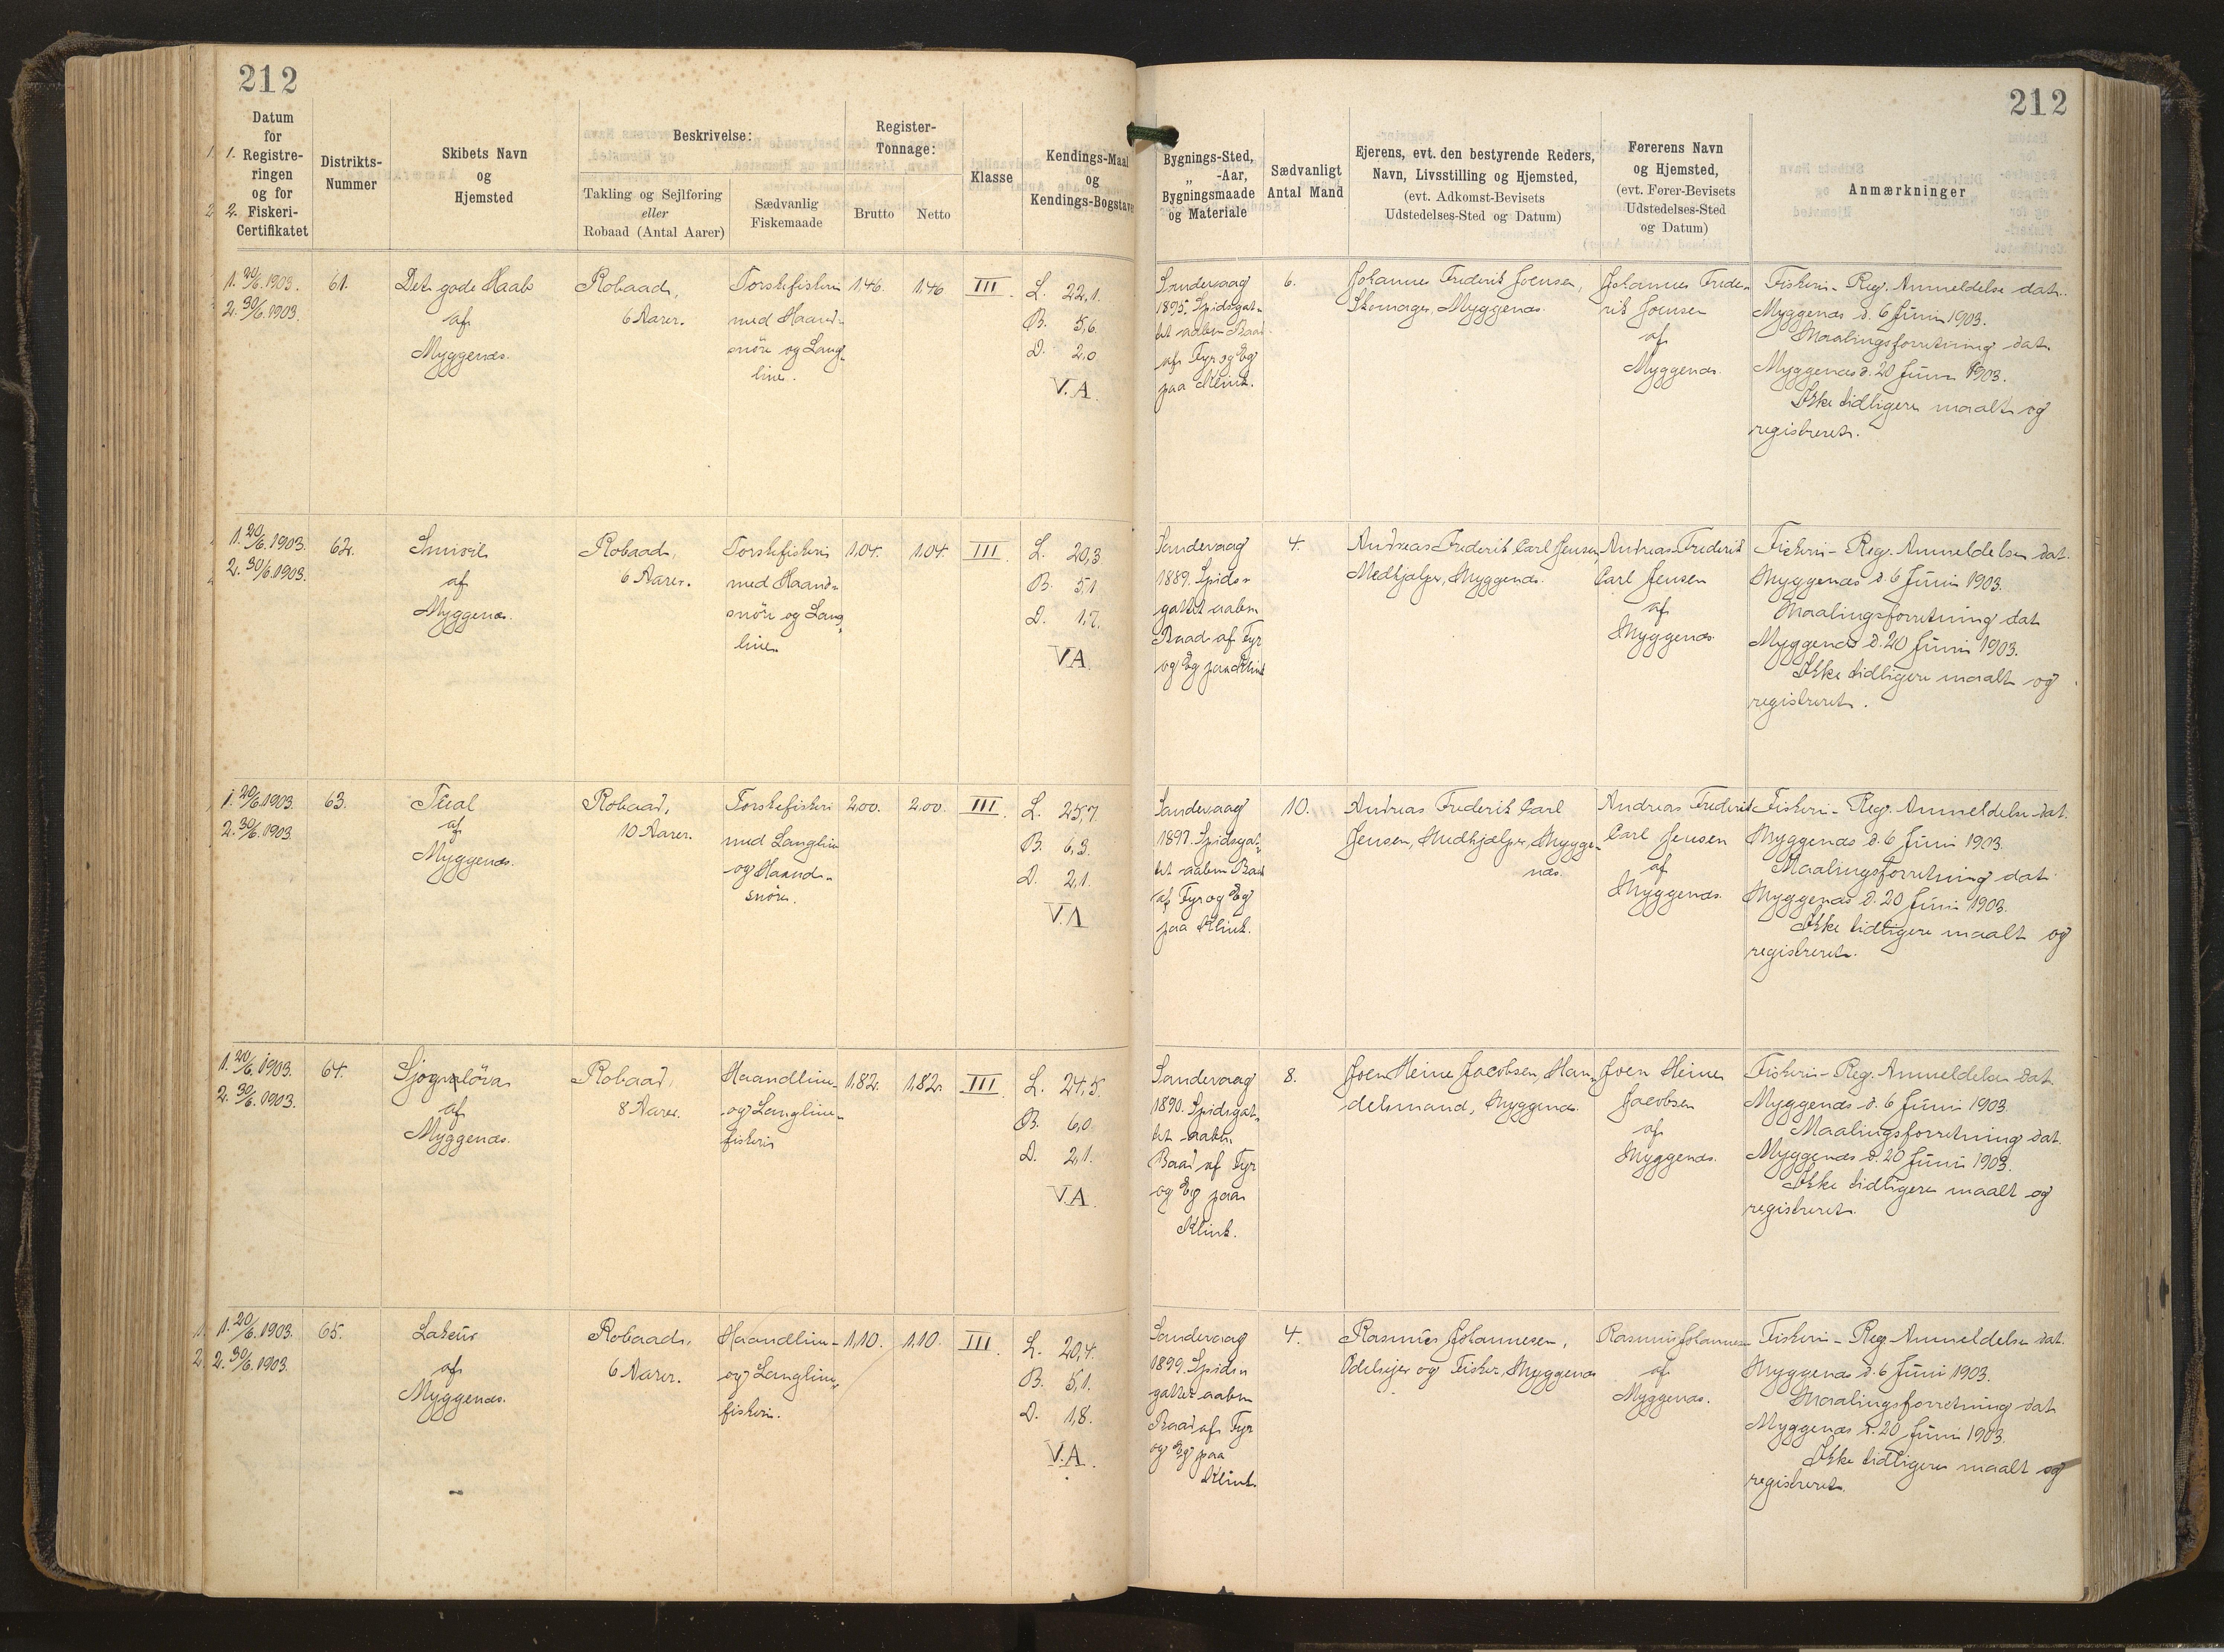 212
212
Datum
for
1. Registre-
ringen
og for
2. Fiskeri-
Certifikatet
Distrikts-
Nummer
Skibets Navn
og
Hjemsted
Beskrivelse:
Takling og Sejlføring
eller
Robaad (Antal Aarer)
Sædvanlig
Fiskemaade
Register-
Tonnage:
Brutto
Netto
Klasse
Kendings-Maal
og
Kendings-Bogstaver
Bygnings-Sted,
„ -Aar,
Bygningsmaade
og Materiale
Sædvanligt
Antal Mand
Ejerens, evt. den bestyrende Reders,
Navn, Livsstilling og Hjemsted,
(evt. Adkomst-Bevisets
Udstedelses-Sted og Datum)
Førerens Navn
og Hjemsted,
(evt. Fører-Bevisets
Udstedelses-Sted
og Datum)
Anmærkninger
1. 20/6.1903.
2. 30/6.1903.
61.
Det gode Haab
af
Myggenæs.
Robaad,
6 Aarer.
Torskefiskeri
med Haand-
snöre og Lang-
line.
1,46.
1,46
III.
L. 22,1.
B. 5,6.
D. 2,0
V.A.
Sandevaag
1895. Spidsgat-
tet aaben Baad
af Fyr og Eg
paa Klink.
6.
Johannes Frederik Joensen,
Skomager, Myggenæs.
Johannes Frede-
rik Joensen
af
Myggenæs.
Fiskeri-Reg. Anmeldelse dat.
Myggenæs d. 6 Juni 1903.
Maalingsforretning dat.
Myggenæs d. 20 Juni 1903.
Ikke tidligere maalt og
registreret.
1. 20/6.1903.
2. 30/6.1903.
62.
Smiril
af
Myggenæs.
Robaad,
6 Aarer.
Torskefiskeri
med Haand-
snöre og Lang-
line.
1,04.
1,04.
III
L. 20,3
B. 5,1
D. 1,7.
V.A.
Sandevaag
1889. Spids-
gattet aaben
Baad af Fyr
og Eg paa Klink
4.
Andreas Frederik Carl Jensen,
Medhjælper, Myggenæs.
Andreas Frederik
Carl Jensen
af
Myggenæs.
Fiskeri-Reg. Anmeldelse dat.
Myggenæs d. 6 Juni 1903.
Maalingsforretning dat
Myggenæs d. 20 Juni 1903.
Ikke tidligere maalt og
registreret.
1. 20/6.1903.
2. 30/6.1903.
63.
af
Myggenæs.
Robaad,
10 Aarer.
Torskefiskeri
med Langline
og Haand-
snöre.
2,00.
2,00.
III.
L. 25,7.
B. 6,3.
D. 2,1.
V.A
Sandevaag
1897. Spidsgat-
tet aaben Baad
af Fyr og Eg
paa Klink.
10.
Andreas Frederik Carl
Jensen, Medhjælper, Mygge-
næs.
Andreas Frederik
Carl Jensen
af
Myggenæs.
Fiskeri-Reg. Anmeldelse dat.
Myggenæs d. 6 Juni 1903.
Maalingsforretning dat.
Myggenæs d. 20 Juni 1903.
Ikke tidligere maalt og
registreret.
1. 20/6.1903.
2. 30/6.1903.
64.
af
Myggenæs.
Robaad,
8 Aarer.
Haandline-
og Langline-
fiskeri
1,82.
1,82.
III.
L. 24,5.
B. 6,0
D. 2,1.
V.A.
Sandevaag
1890. Spidsgat-
tet aaben
Baad af Fyr
og Eg paa
Klink.
8.
Joen Heine Jacobsen, Han-
delsmand, Myggenæs.
Joen Heine
Jacobsen
af
Myggenæs.
Fiskeri-Reg. Anmeldelse dat.
Myggenæs d. 6 Juni 1903.
Maalingsforretning dat.
Myggenæs d. 20 Juni 1903.
Ikke tidligere maalt og
registreret.
1. 20/6.1903.
2. 30/6.1903.
65.
af
Myggenæs.
Robaad,
6 Aarer.
Haandline-
og Langline-
fiskeri.
1,10.
1,10.
III.
L. 20,4.
B. 5,1.
D. 1,8.
V.A.
Sandevaag
1899. Spids-
gattet aaben
Baad af Fyr
og Eg paa
Klink.
4.
Rasmus Johannesen,
Odelsejer og Fisker, Myggenæs
Rasmus Johannesen
af
Myggenæs.
Fiskeri-Reg. Anmeldelse dat.
Myggenæs d. 6 Juni 1903.
Maalingsforretning dat
Myggenæs d. 20 Juni 1903.
Ikke tidligere maalt og
registreret.